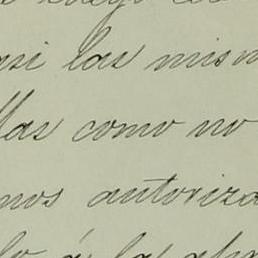 asi las mism
llas como no
mos autoriza
lo á las apr